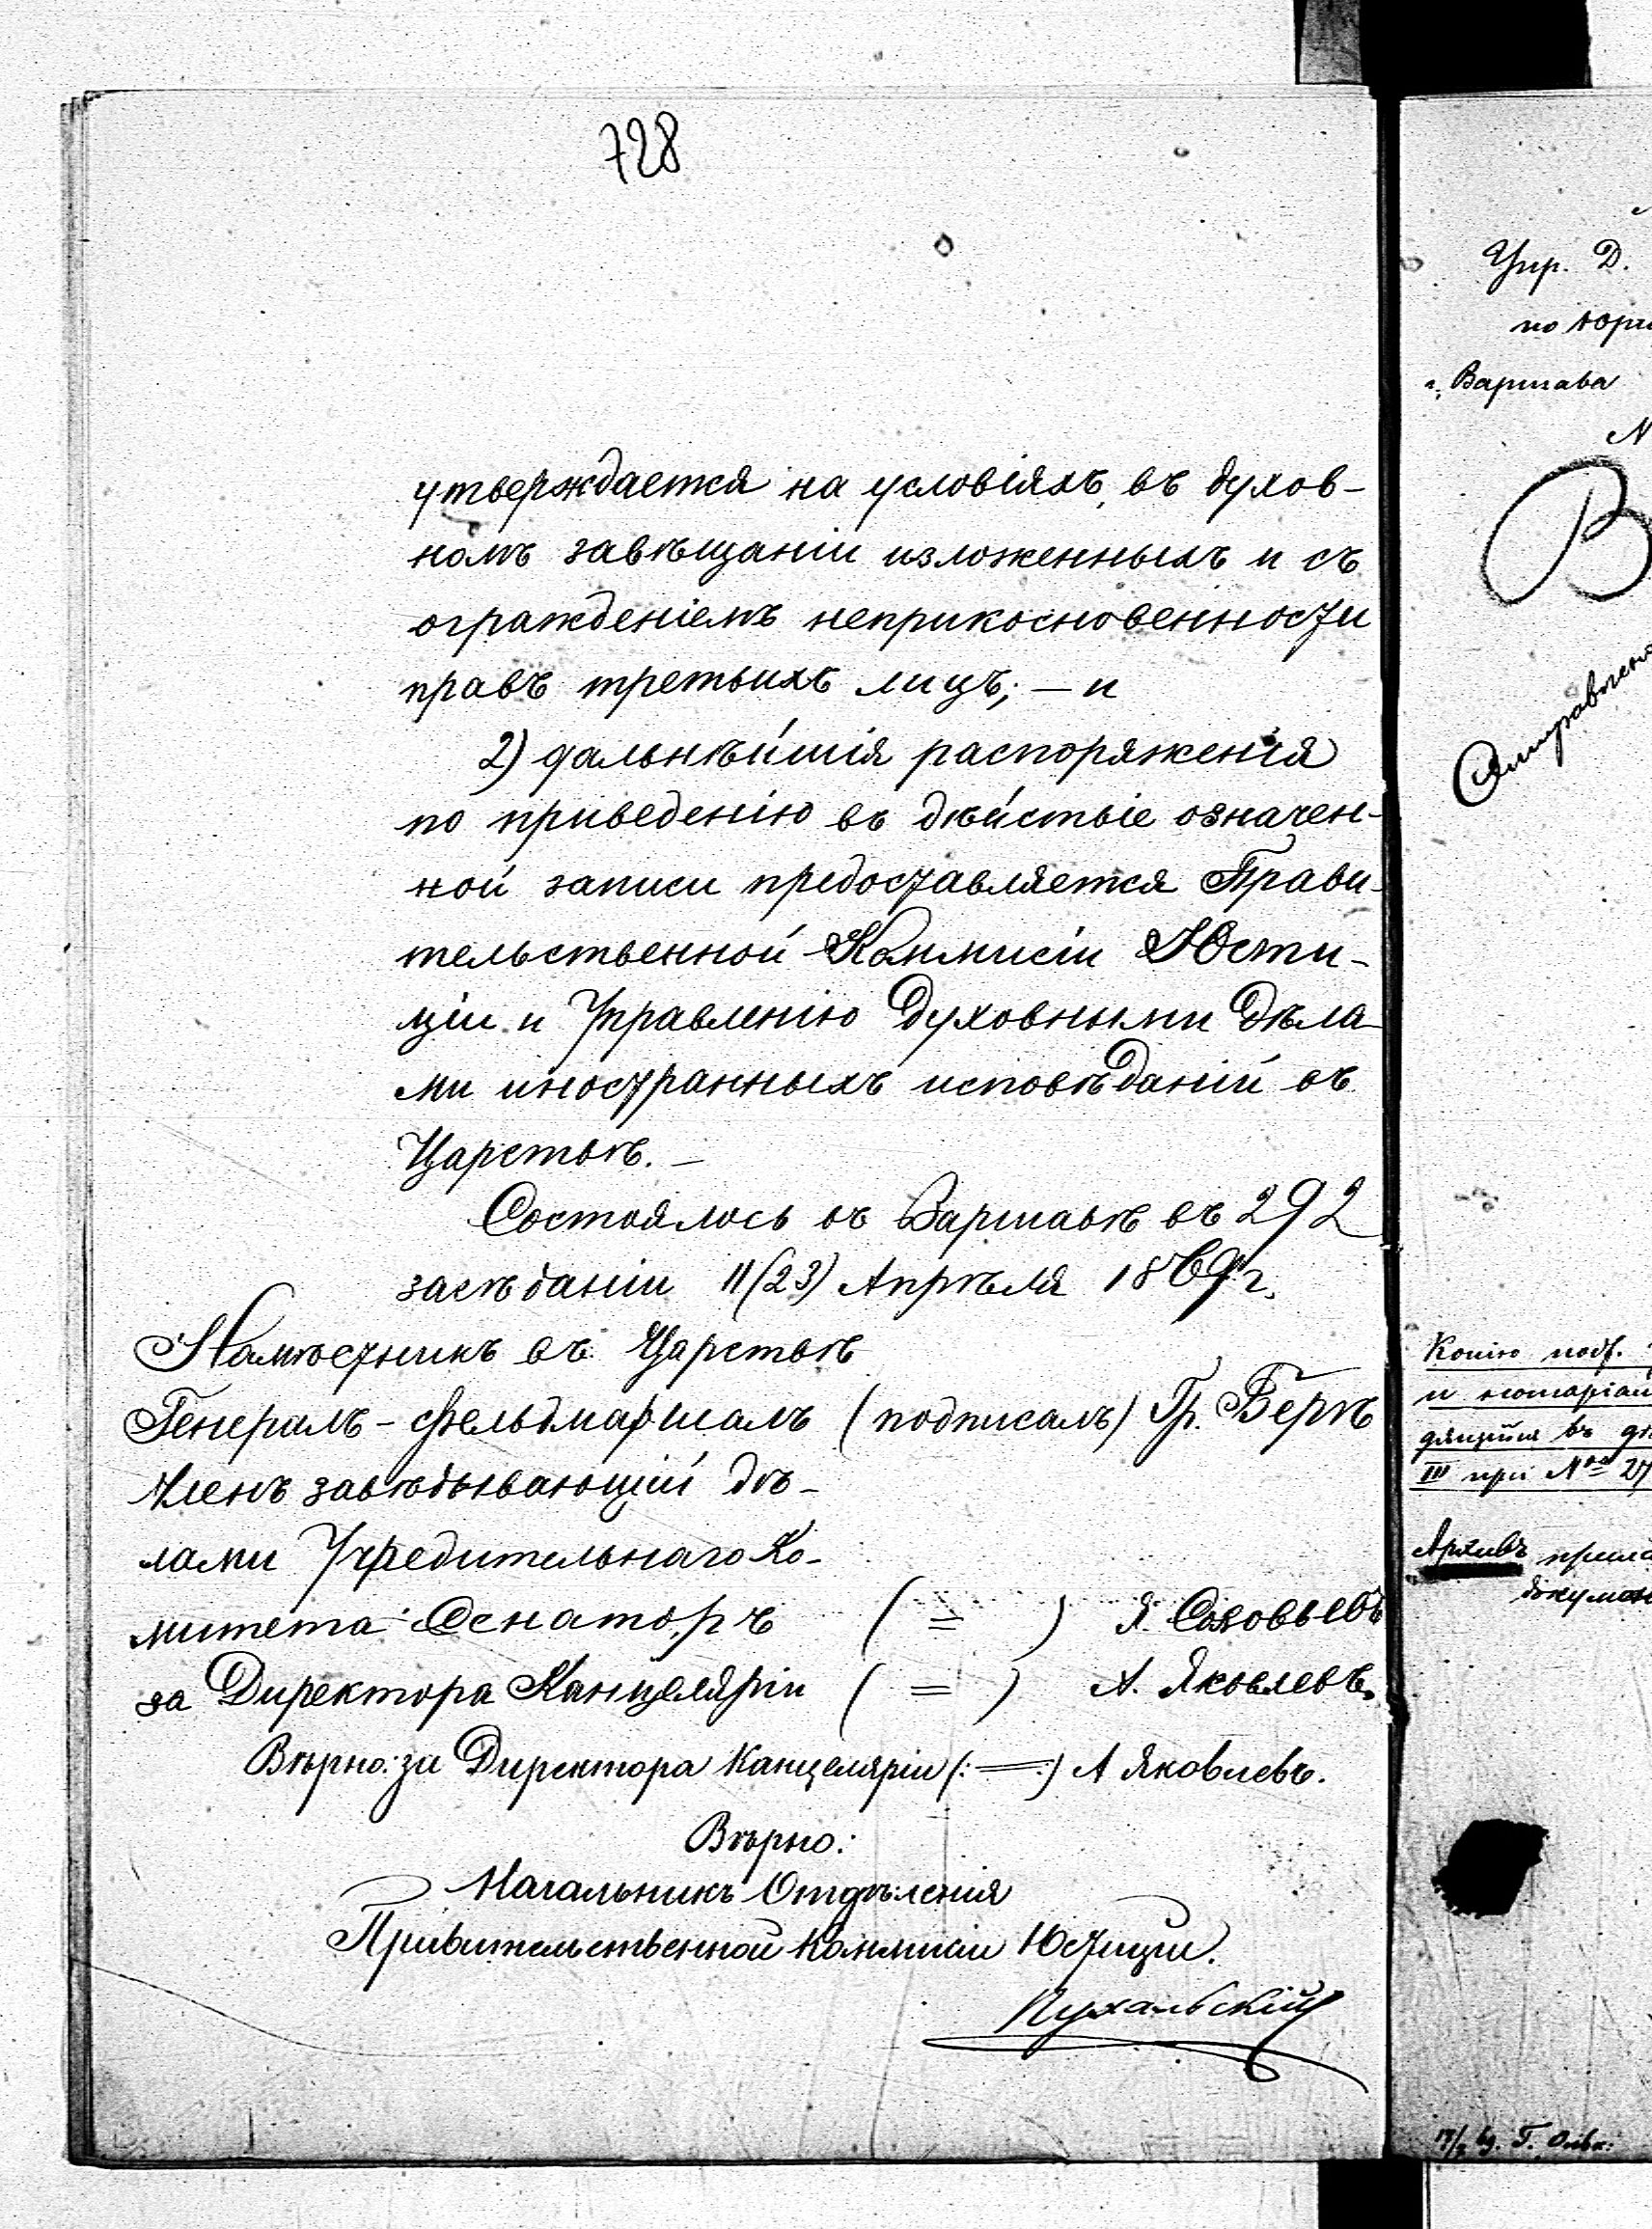 728
утверждается на условіяхъ, въ духов-
номъ завѣщаніи изложенныхъ и съ
огражденіемъ неприкосновенности
правъ третьихъ лицъ; — и
2) дальнѣйшія распоряженія
по приведенію въ дѣйствіе означен-
ной записи предоставляется Прави-
тельственной Коммисіи Юсти-
ціи и Управленію Духовными Дѣла-
ми иностранныхъ исповѣданій въ
Царствѣ. —
Состоялось въ Варшавѣ въ 292
засѣданіи 11(23) Апрѣля 1869 г.
Намѣстникъ въ Царствѣ
Генералъ-Фельдмаршалъ (подписалъ) Гр. Бергъ
Членъ завѣдывающій дѣ-
лами Учредительнаго Ко-
митета Сенаторъ ( = ) Я. Соловьевъ
за Директора Канцеляріи ( = ) А. Яковлевъ.
Вѣрно: за Директора Канцеляріи (: = :) А Яковлевъ.
Вѣрно:
Начальникъ Отдѣленія
Правительственной Коммисіи Юстиціи.
Пухальскій
Упр. Д.
по юри
г. Варшава
N
В
Отправлено
Копію
и нотаріал
въ
III при №
Архивъ
докумен